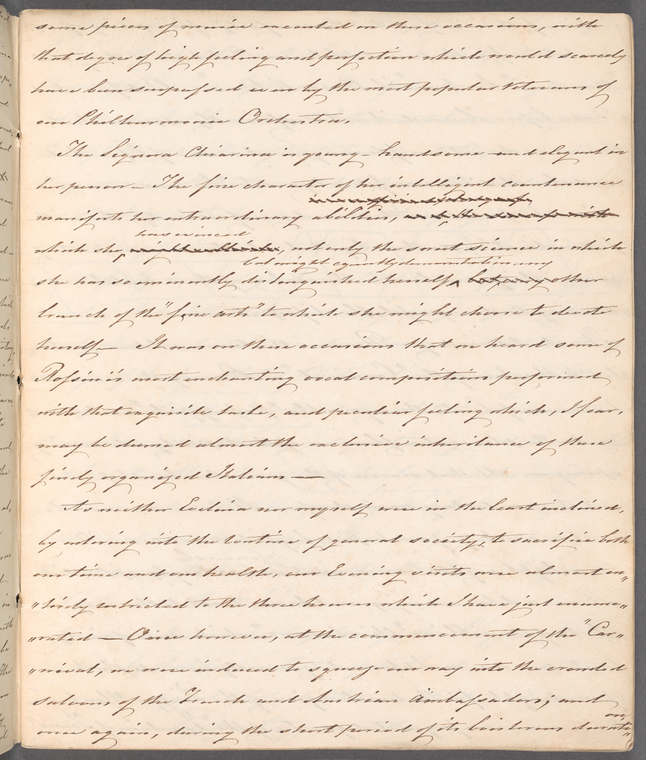 some pieces of music executed on these occasions, with
that degree of high feeling and perfection which would scarcely
have been surpassed even by the most popular Veterans of
our Philharmonic Orchestra.
The Signora Chiarina is young – handsome – and elegant in
her person – The fine character of her intelligent countenance
manifests her extraordinary abilities,
has evinced
which she, not only the sweet science in which
but might equally demonstrate in any
she has so eminently distinguished herself, other
branch of the "fine arts" to which she might choose to devote
herself – It was on these occasions that we heard some of
Rossini's most enchanting vocal compositions performed
with that exquisite taste, and peculiar feeling which, I fear,
may be deemed almost the exclusive inheritance of these
finely organized Italians —
As neither Eveline nor myself were in the least inclined,
by entering into the routine of general society, to sacrifice both
our time and our health, our Evening visits were almost en„
„tirely restricted to the three houses which I have just enume„
„rated — Once however, at the commencement of the "Car„
„nival, we were induced to squeeze our way into the crowded
saloons of the French and Austrian Ambassadors; and
once again, during the short period of its boisterous duration,